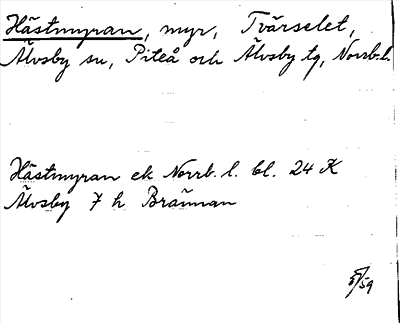 Hästmyran, myr, Tvärselet,
Älvsby sn, Piteå och Älvsby tg, Norrb.l.
Hästmyran ek Norrb. l. bl. 24 K
Älvsby 7 h Brännan